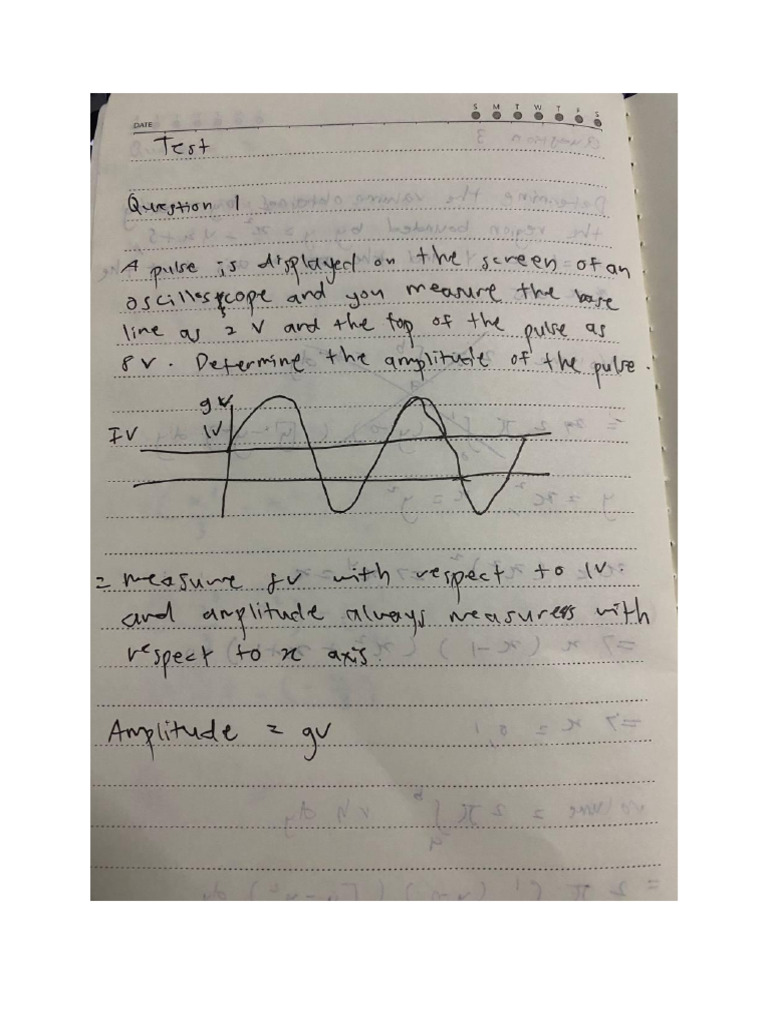 S M T W T F S
DATE
Test
Question 1
A pulse is displayed on the screen of an
oscilloscope and you measure the base
line as 2 V and the top of the pulse as
8 V. Determine the amplitude of the pulse.
9V
IV 1V
= measure 8V with respect to 1V.
and amplitude always measures with
respect to x axis.
Amplitude = 9V